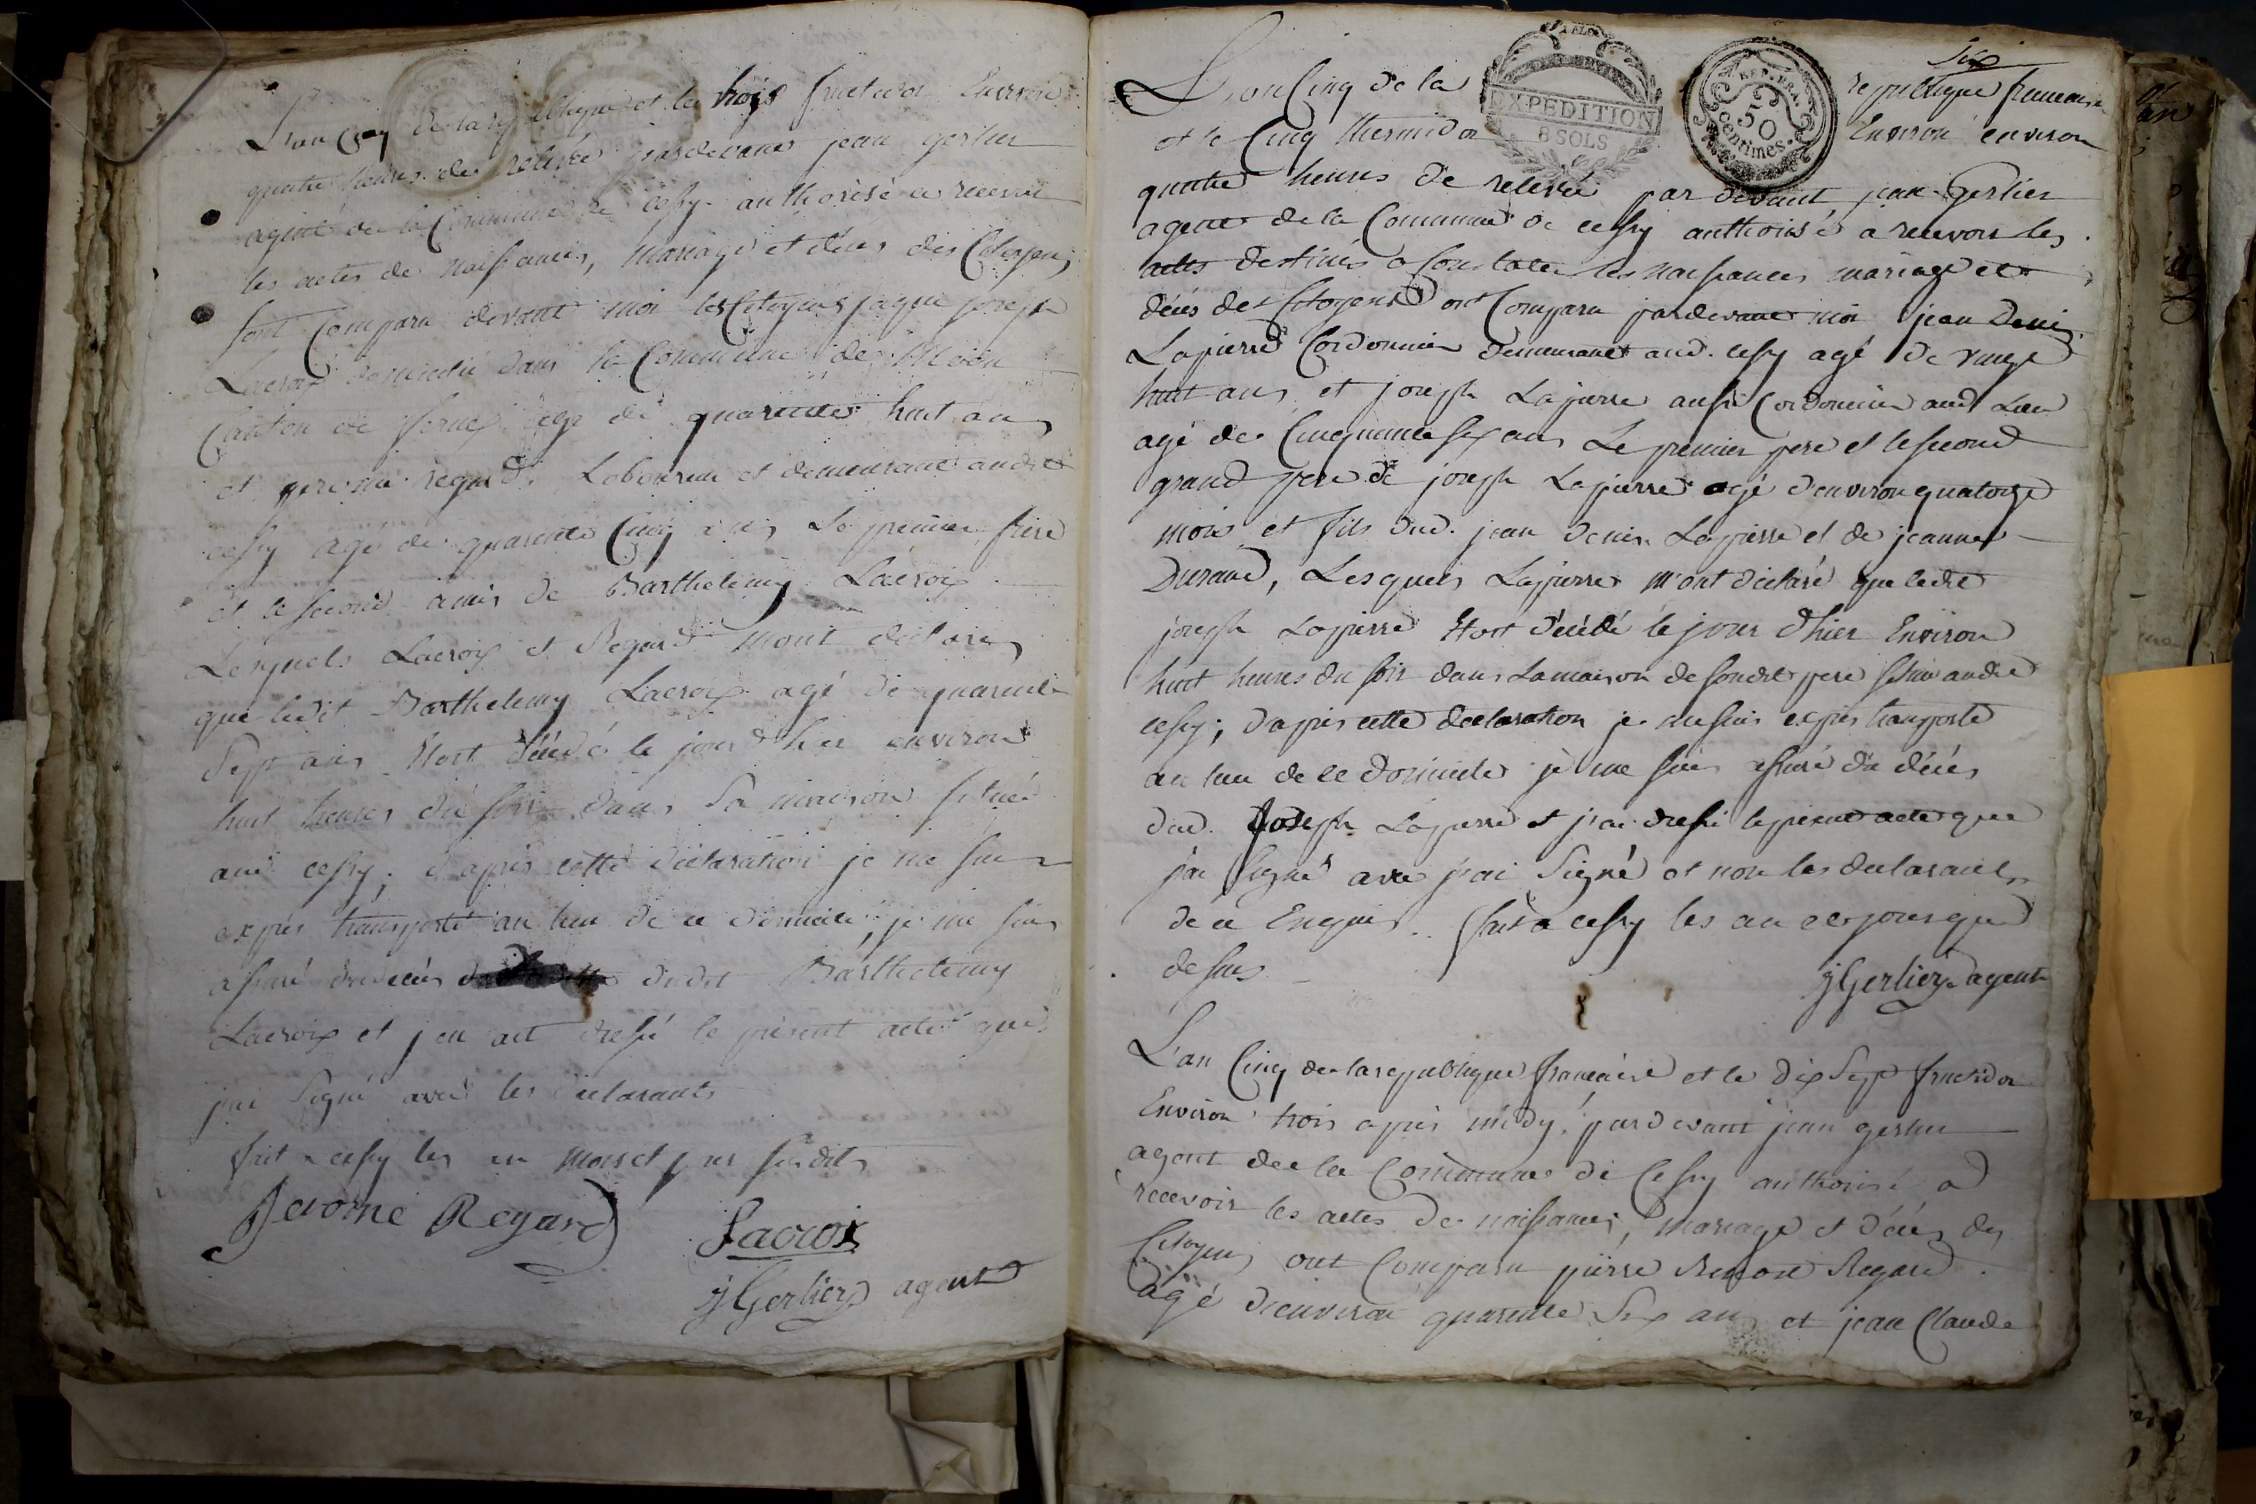 L'an Cinq de la republique et le trois fructidor Environ
quatre heures de relevée pardevant jean gerlier
agent de la Commune de Cessy authorisé a recevoir
les actes de naissances, mariage et décès des Citoyens
sont Comparu devant moi les Citoyens jaque joseph
Lacroix domicilié dans la Commune de
Canton de ferney agé de quarente huit ans
et gerome regard Laboureur et demeurant audit
cessy agé de quarente Cinq ans Le premier frere
et le second amis de Barthelemy Lacroix
Lesquels Lacroix et Regard m'ont déclaré
que ledit Barthelemy Lacroix agé de quarente
Sept ans Etoit décédé le jour d'hier environ
huit heures du soir dans sa maison située
aud cessy; d'apres cette déclaration je me suis
exprès transporté au lieu de ce domicile, je me suis
assuré du décès dudit Barthelemy
Lacroix et j'en ait dressé le présent acte que
j'ai Signé avec les déclarants
fait a cessy les an mois et jour susdits
Jerome Regard
Lacroix
j Gerlier agent
six
L'an Cinq de la republique francaise
EXPEDITION
8 SOLS
REP. FRA.
50
centimes.
et le Cinq thermidor Environ environ
quatre heures de relevée par devant jean Gerlier
agent de la Commune de cessy authorisé a recevoir les
actes destinés a Constater les naissances mariage et
décès des Citoyens ont Comparu pardevant moi jean Denis
Lapierre Cordonnier demeurant aud. cessy agé de vingt
huit ans et joseph Lapierre aussi Cordonnier aud Lieu
agé de Cinquante six ans Le premier pere et le second
grand pere de joseph Lapierre agé d'environ quatorze
mois et fils dud. jean denis Lapierre et de jeanne
Durand, Lesquels Lapierre m'ont déclaré que ledit
joseph Lapierre Etoit décédé le jour d'hier Environ
huit heures du soir dans La maison de sondit pere situé audit
cessy; d'apres cette declaration je me suis exprès transporté
au lieu de ce domicile je me suis assuré du décès
dud. Joseph Lapierre et j'ai dressé le présent acte que
j'ai Signé avec j'ai Signé et non les declarants
de ce Enquis. fait a cessy les an et jour que
dessus
j Gerlier agent
L'an Cinq de la republique francaise et le dix Sept fructidor
Environ trois après midy, pardevant jean gerlier
agent de la Commune de Cessy authorisé a
recevoir les actes de naissances, mariage et décès des
Citoyens ont Comparu pierre Regard
agé d'environ quarente Six ans et jean Claude